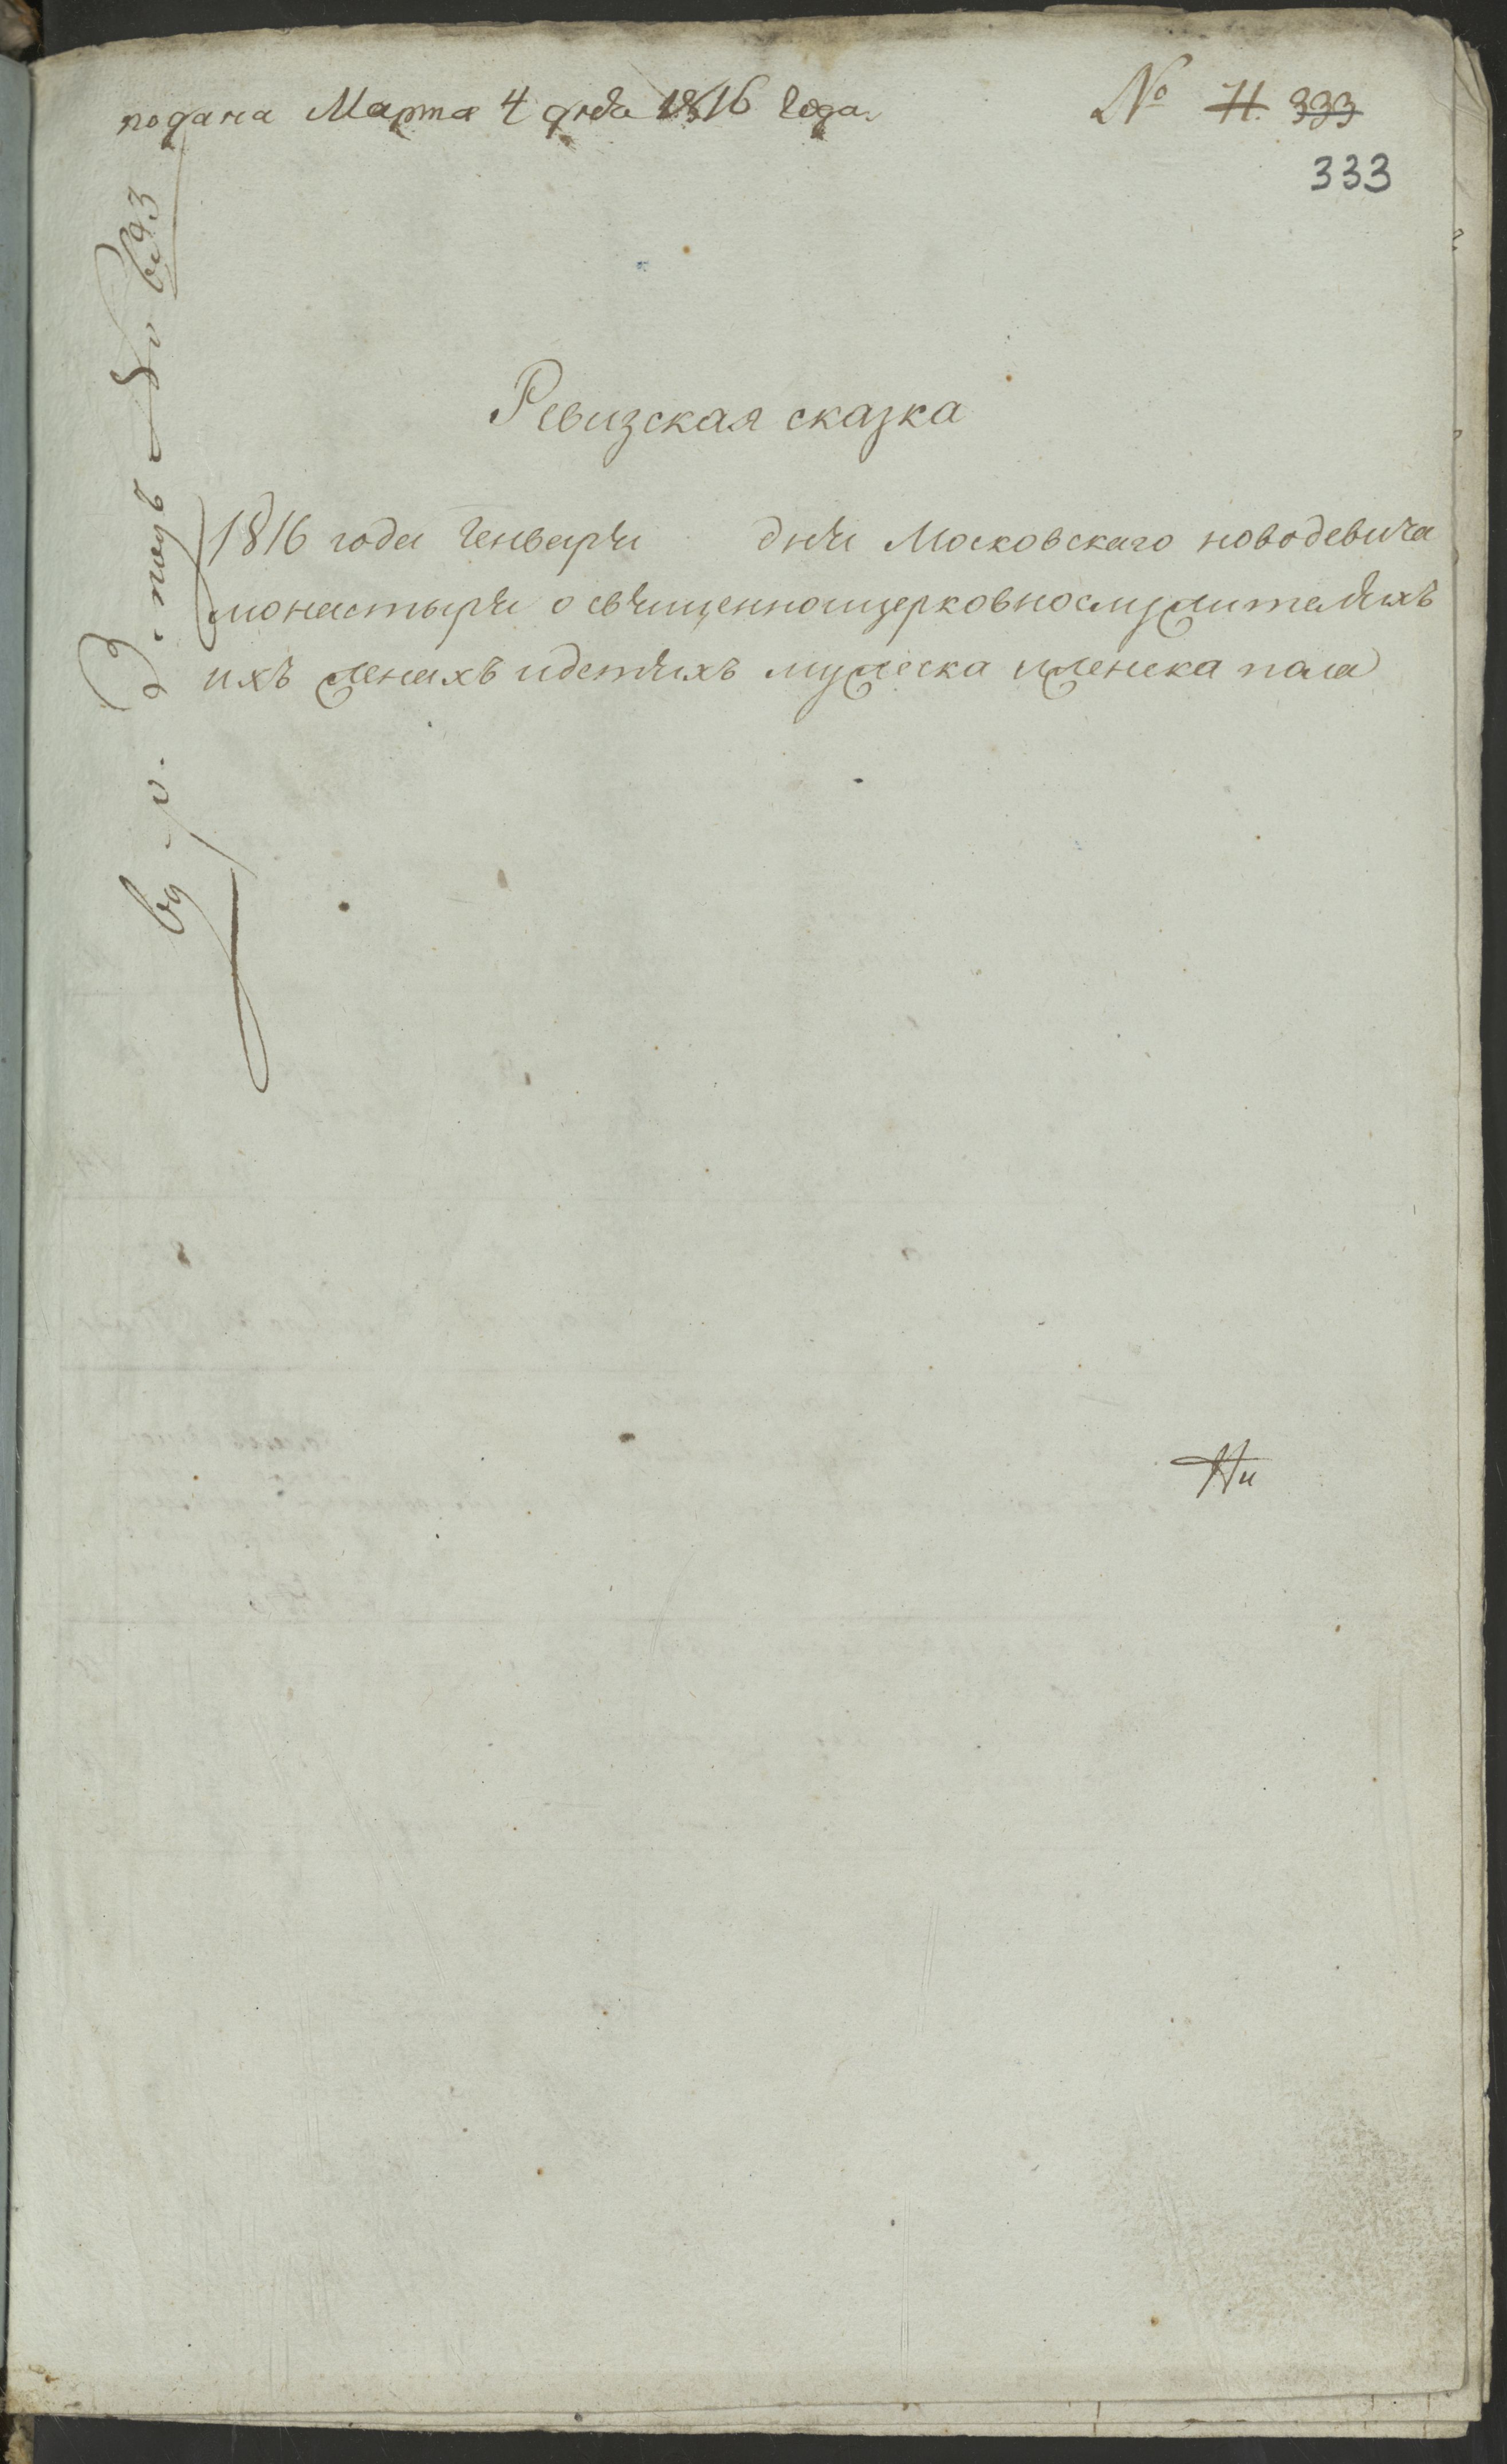 подана Марта 4 дня 1816 года.
№ 71. 333
333
Ревизская сказка
1816 года Генваря дня Московскаго новодевича
монастыря о священноицерковнослужителяхъ
ихъ женахъ идетяхъ мужеска иженска пола